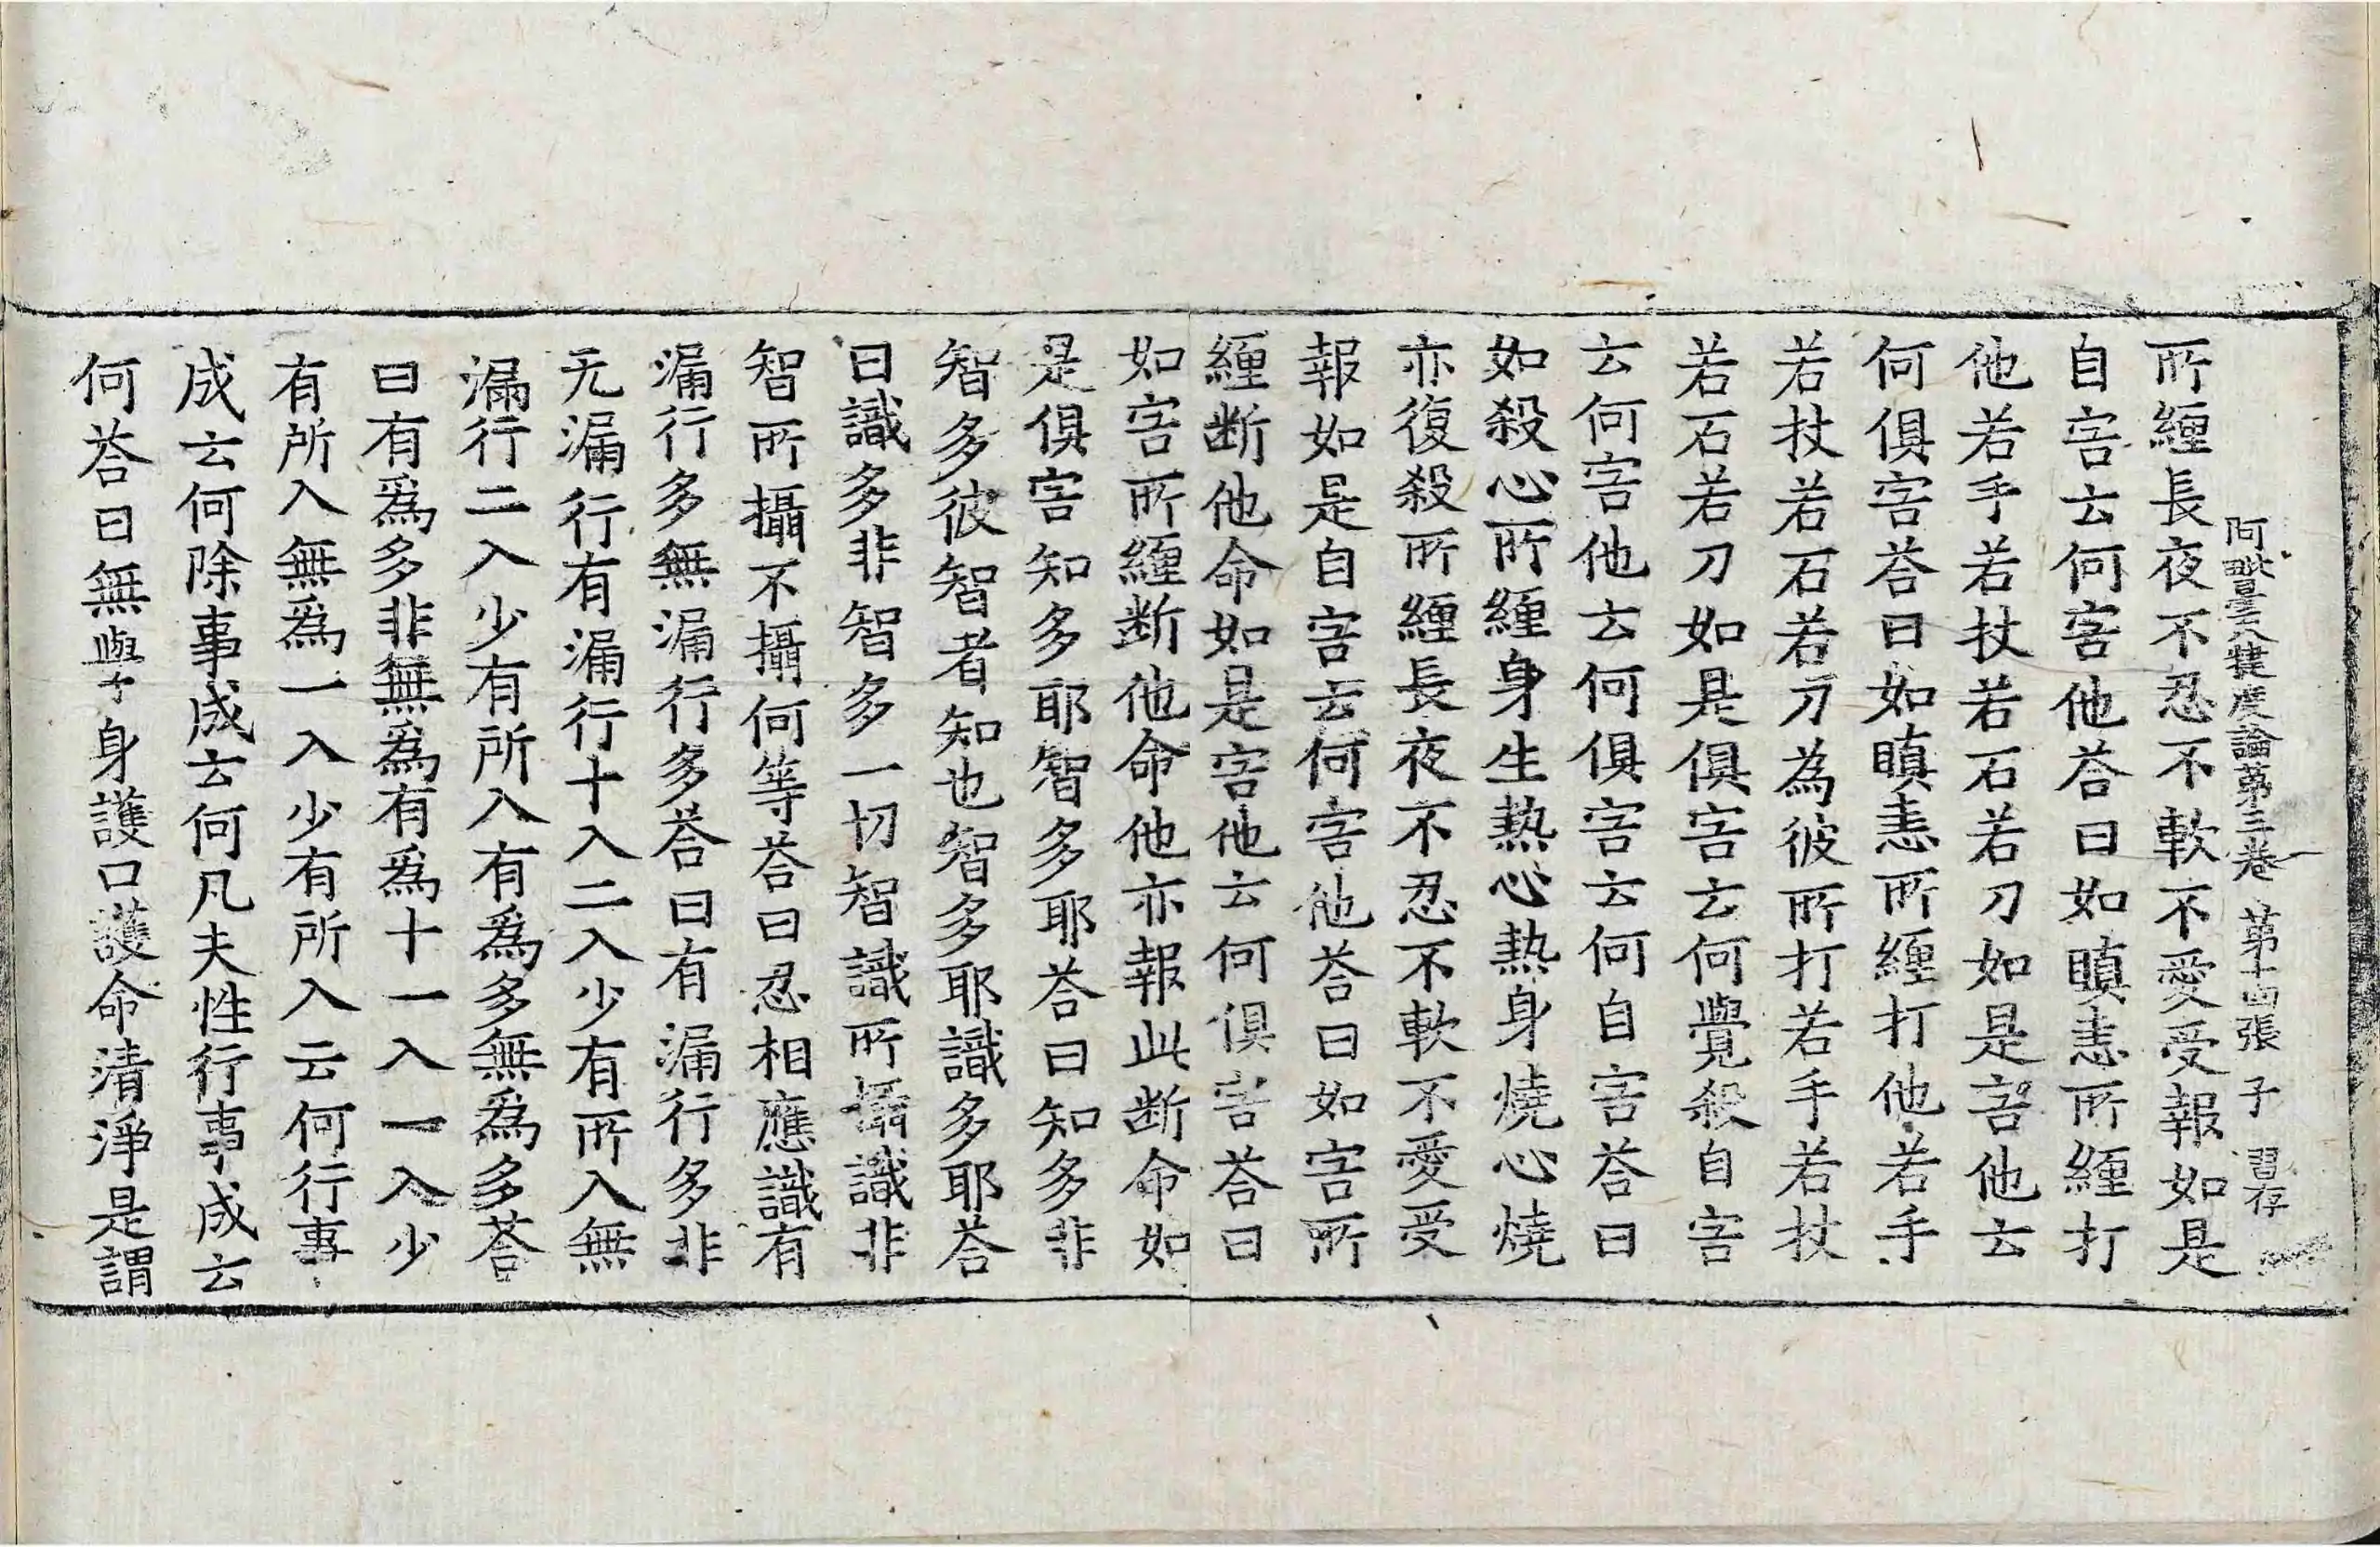 阿毗曇八揵度論第三卷 第十四張 子 習存
所纏長夜不忍不軟不愛受報如是
自害云何害他荅曰如瞋恚所纏打
他若手若杖若石若刀如是害他云
何俱害荅曰如瞋恚所纏打他若手
若杖若石若刀為彼所打若手若杖
若石若刀如是俱害云何覺殺自害
云何害他云何俱害云何自害荅曰
如殺心所纏身生熱心熱身燒心燒
亦復殺所纏長夜不忍不軟不愛受
報如是自害云何害他荅曰如害所
纏断他命如是害他云何俱害荅曰
如害所纏断他命他亦報此断命如
是俱害知多耶智多耶荅曰知多非
智多彼智者知也智多耶識多耶荅
曰識多非智多一切智識所攝識非
智所攝不攝何等荅曰忍相應識有
漏行多無漏行多荅曰有漏行多非
无漏行有漏行十入二入少有所入無
漏行二入少有所入有爲多無爲多荅
曰有爲多非無爲有爲十一入一入少
有所入無爲一入少有所入云何行事
成云何除事成云何凡夫性行事成云
何荅曰無學身護口護命清淨是謂